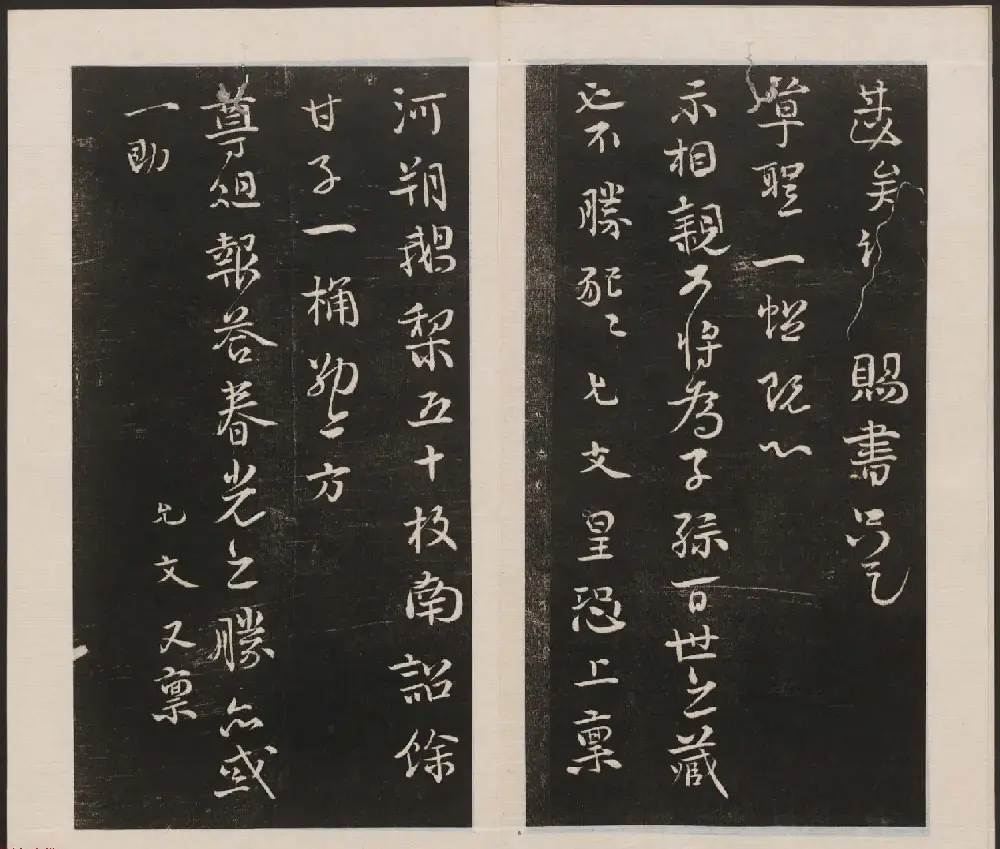 甚矣 賜書只乞
草聖一幅既以
示相親又將為子孫百世之藏
不勝 允文皇恐上稟
河朔鵝梨五十枚南詔餘
甘子一桶 方
尊俎報答春光之勝亦或
一助
允文又稟